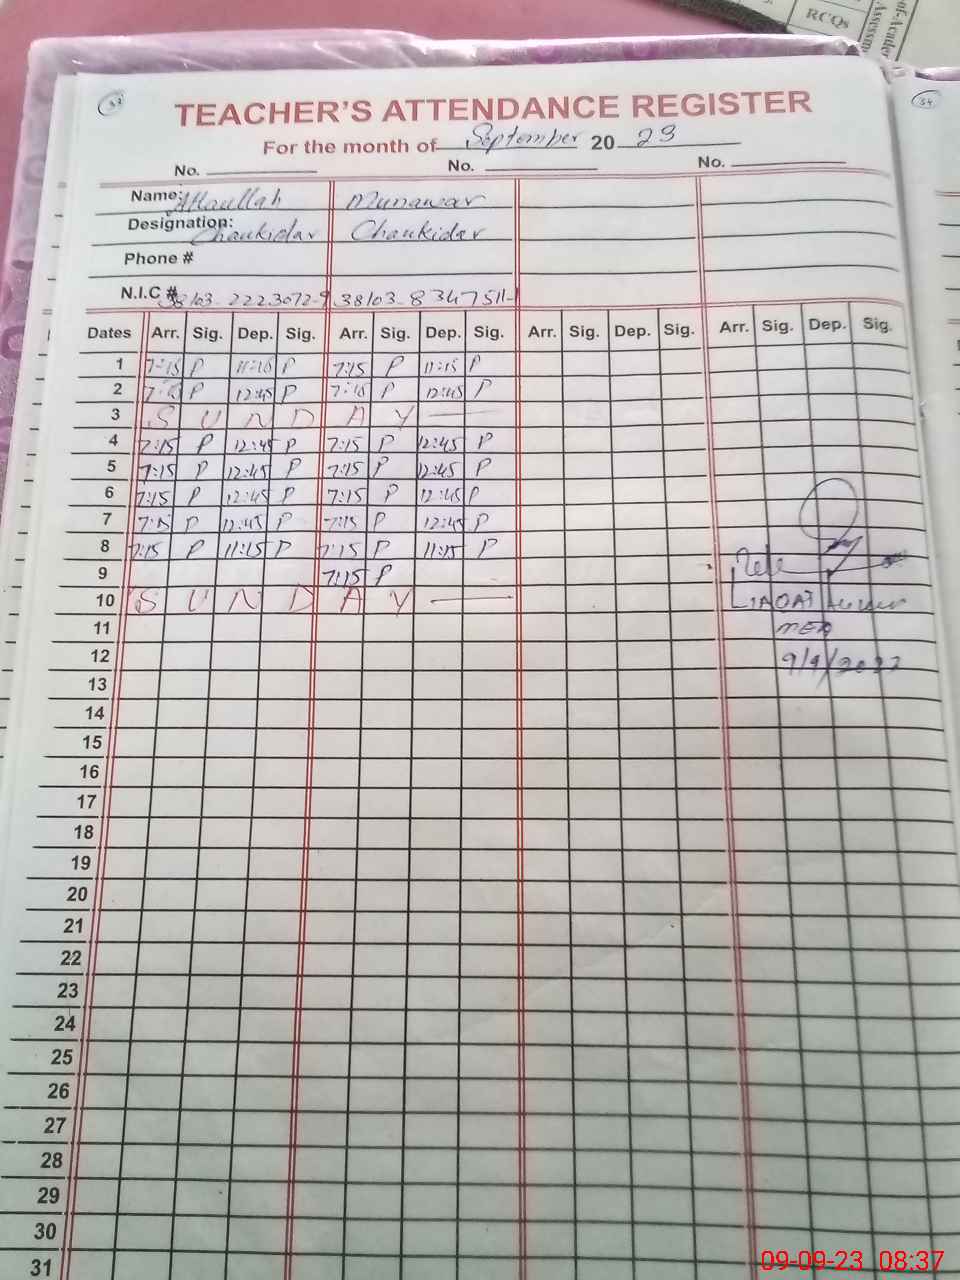 RCQs
of-Acade
Assessm
32
34
TEACHER'S ATTENDANCE REGISTER
For the month of September 20 23
No. No. No.
Name: Attaullah Munawar
Designation: Chaukidar Chaukidar
Phone #
N.I.C # 38103-2223072-9 38103-8347511-1
Dates Arr. Sig. Dep. Sig. Arr. Sig. Dep. Sig. Arr. Sig. Dep. Sig. Arr. Sig. Dep. Sig.
1 7:15 P 11:15 P 7:15 P 11:15 P
2 7:15 P 12:45 P 7:15 P 12:45 P
3 S U N D A Y
4 7:15 P 12:45 P 7:15 P 12:45 P
5 7:15 P 12:45 P 7:15 P 12:45 P
6 7:15 P 12:45 P 7:15 P 12:45 P
7 7:15 P 12:45 P 7:15 P 12:45 P
8 7:15 P 11:15 P 7:15 P 11:15 P
9 7:15 P
10 S U N D A Y
LIAQAT
11 MEA
12 9/9/2023
13
14
15
16
17
18
19
20
21
22
23
24
25
26
27
28
29
30
31
09-09-23 08:37